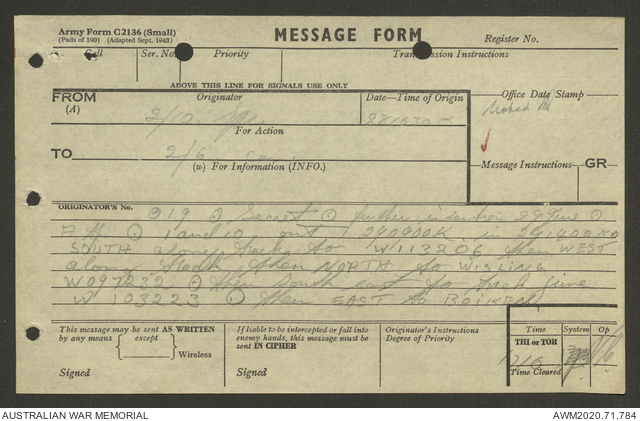 Army Form C2136 (Small)
(Pads of 100) (Adapted Sept. 1943)
MESSAGE FORM
Register No.
Call
Ser. No.
Priority
Transmission Instructions
ABOVE THIS LINE FOR SIGNALS USE ONLY
FROM
(A)
Originator
Date—Time of Origin
Office Date Stamp
2/10
281830K
For Action
TO
2/6
(w) For Information (INFO.)
Message Instructions
GR
ORIGINATOR'S No.
019 Secret further intention 29 June
1 and 10 out 290900K in 291400K
SOUTH along track to W113206 then WEST
along track then NORTH to WISLING
W093232 then south east to track junc
W 103223 then EAST to BOIKEN
This message may be sent AS WRITTEN
by any means
except
Wireless
Signed
If liable to be intercepted or fall into
enemy hands, this message must be
sent IN CIPHER
Signed
Originator's Instructions
Degree of Priority
Time
System
Op
THI or TOR
Time Cleared
AUSTRALIAN WAR MEMORIAL
AWM2020.71.784